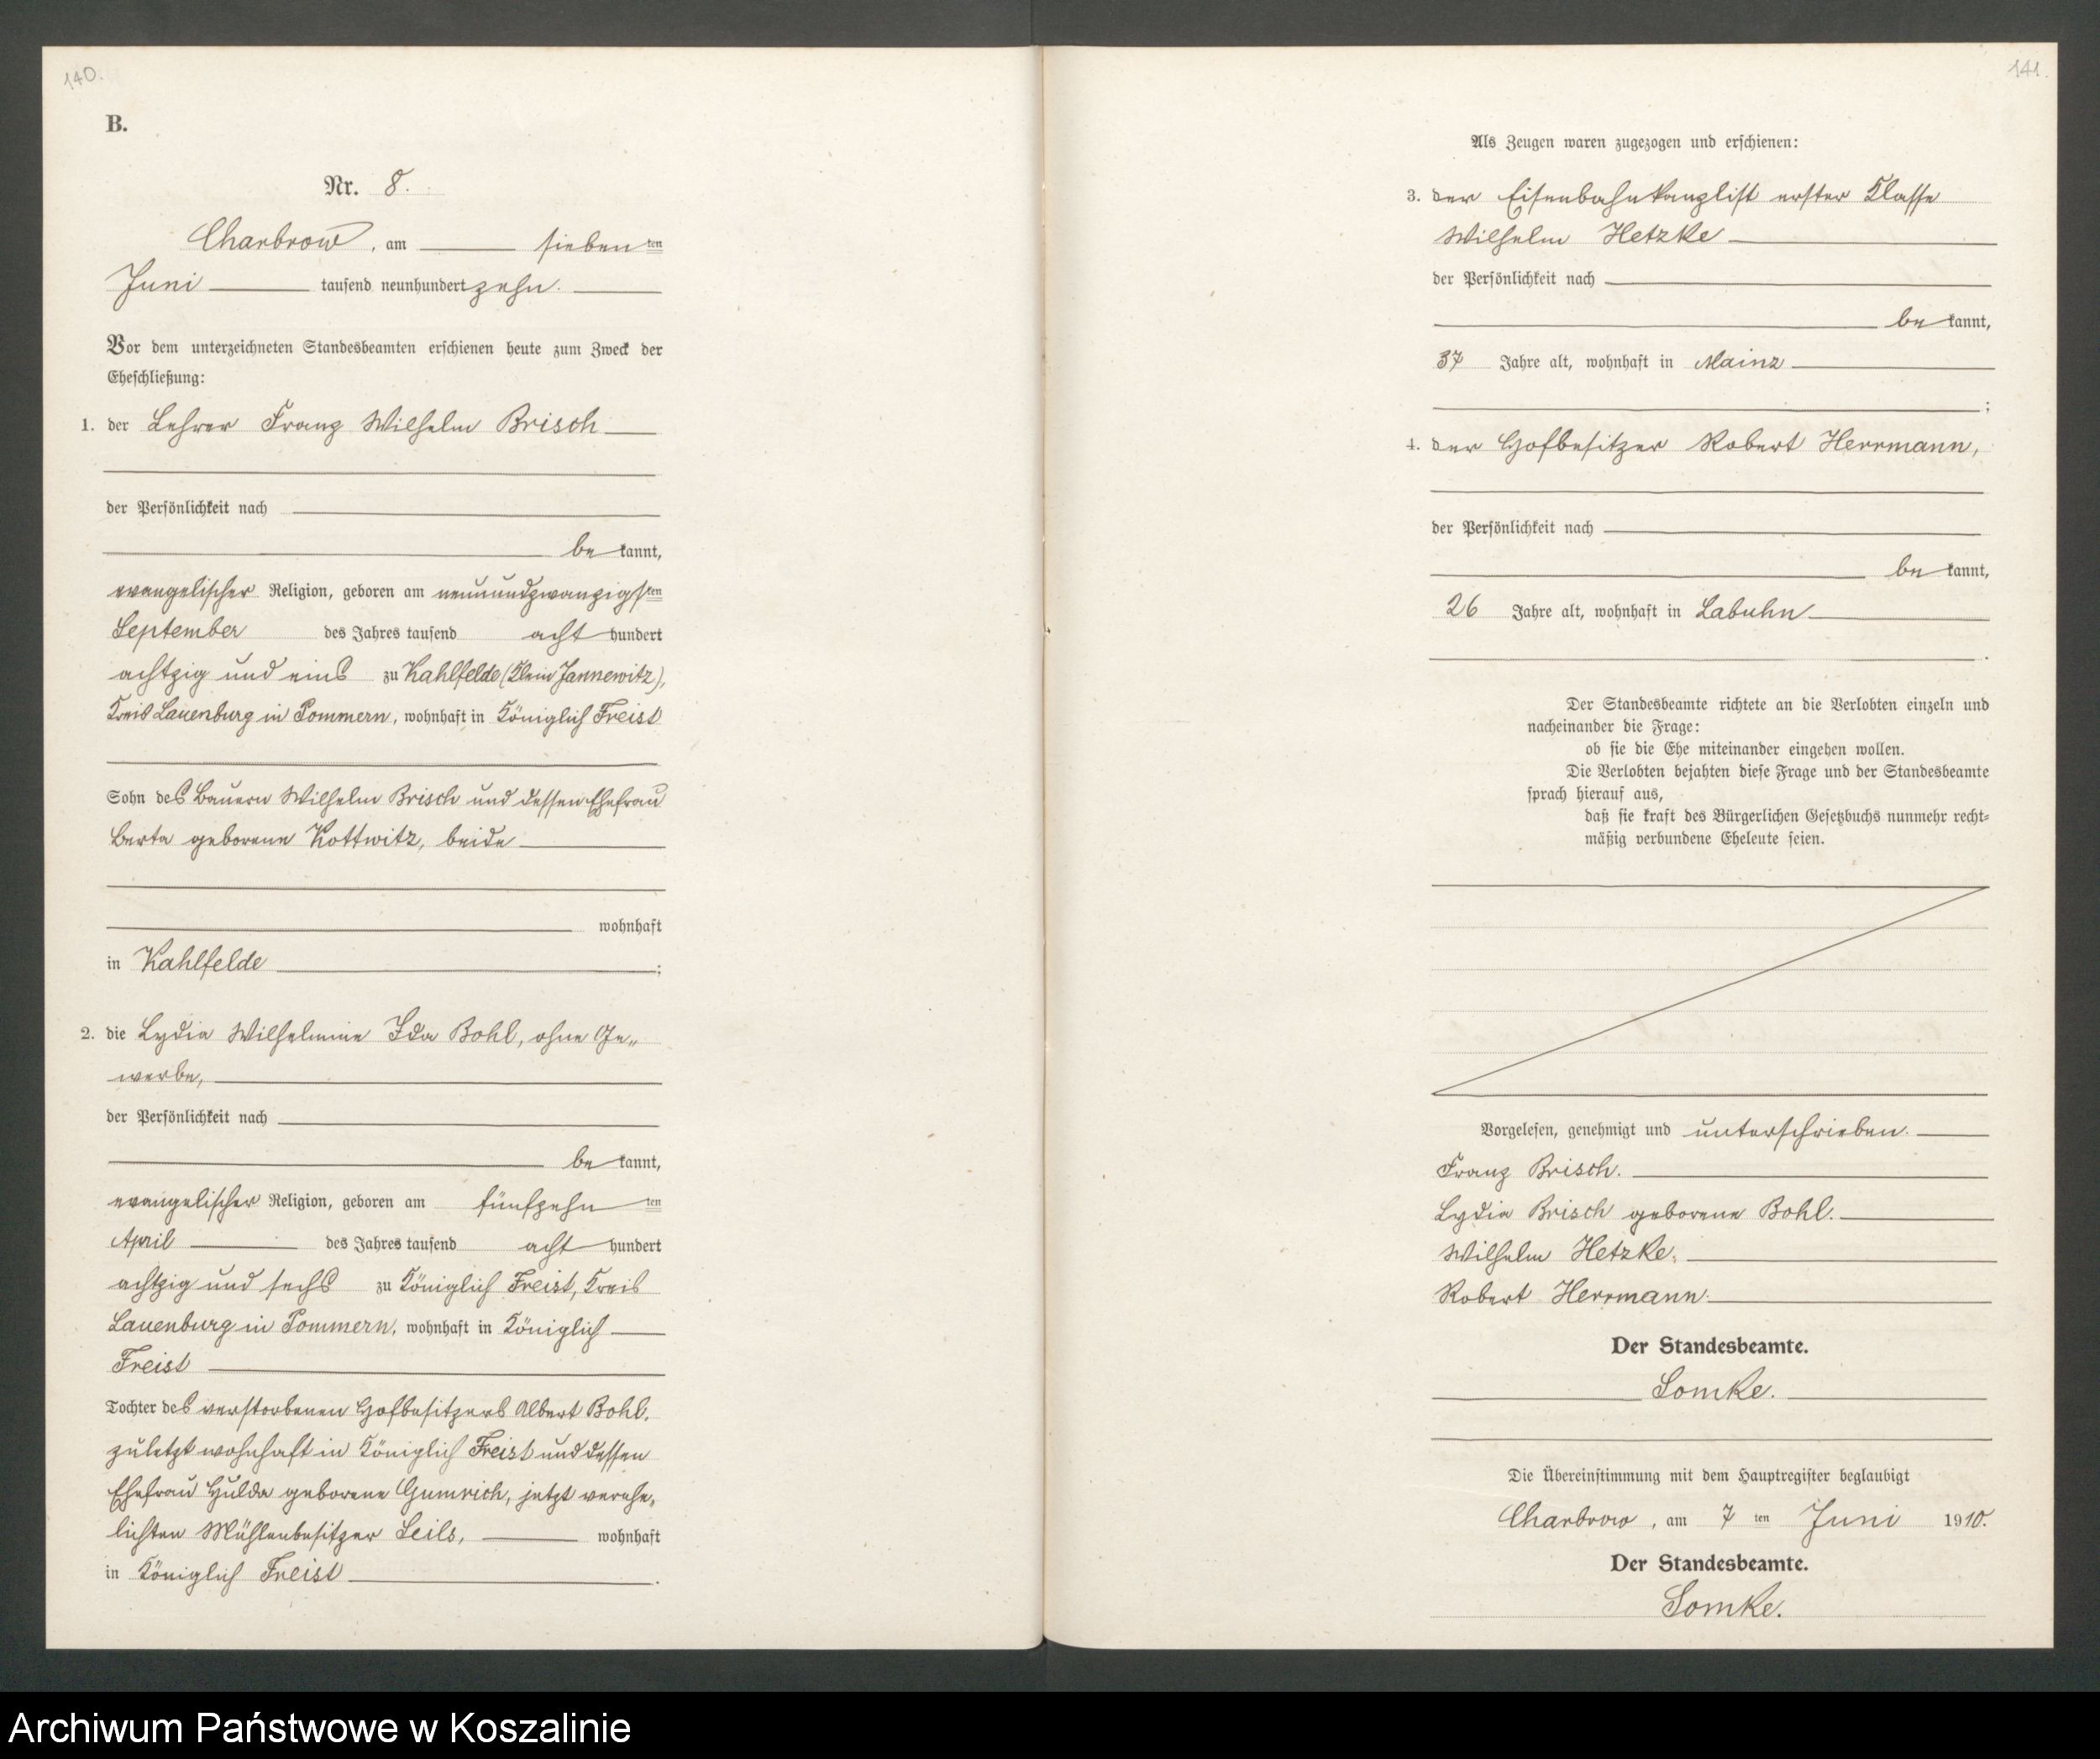 140.
B.
Nr. 8.
Charbrow, am sieben ten
Juni tausend neunhundert zehn.
Vor dem unterzeichneten Standesbeamten erschienen heute zum Zweck der
Eheschließung:
1. der Lehrer Franz Wilhelm Brisch
der Persönlichkeit nach
be kannt,
evangelischer Religion, geboren am neunundzwanzigsten
September des Jahres tausend acht hundert
achtzig und eins zu Kahlfelde (Klein Jannewitz),
Kreis Lauenburg in Pommern, wohnhaft in Königlich Freist
Sohn des Bauern Wilhelm Brisch und dessen Ehefrau
Berta geborene Kottwitz, beide
wohnhaft
in Kahlfelde ;
2. die Lydia Wilhelmine Ida Bohl, ohne Ge„
werbe,
der Persönlichkeit nach
be kannt,
evangelischer Religion, geboren am fünfzehn ten
April des Jahres tausend acht hundert
achtzig und sechs zu Königlich Freist, Kreis
Lauenburg in Pommern, wohnhaft in Königlich
Freist
Tochter des verstorbenen Hofbesitzers Albert Bohl,
zuletzt wohnhaft in Königlich Freist und dessen
Ehefrau Hulda geborene Gumrich, jetzt verehe„
lichten Mühlenbesitzer Leils, wohnhaft
in Königlich Freist .
141.
Als Zeugen waren zugezogen und erschienen:
3. der Eisenbahnkanzlist erster Klasse
Wilhelm Hetzke
der Persönlichkeit nach
be kannt,
37 Jahre alt, wohnhaft in Mainz
;
4. der Hofbesitzer Robert Herrmann,
der Persönlichkeit nach
be kannt,
26 Jahre alt, wohnhaft in Labuhn
.
Der Standesbeamte richtete an die Verlobten einzeln und
nacheinander die Frage:
ob sie die Ehe miteinander eingehen wollen.
Die Verlobten bejahten diese Frage und der Standesbeamte
sprach hierauf aus,
daß sie kraft des Bürgerlichen Gesetzbuchs nunmehr recht-
mäßig verbundene Eheleute seien.
Vorgelesen, genehmigt und unterschrieben.
Franz Brisch.
Lydia Brisch geborene Bohl.
Wilhelm Hetzke.
Robert Herrmann.
Der Standesbeamte.
Somke.
Die Übereinstimmung mit dem Hauptregister beglaubigt
Charbrow, am 7 ten Juni 1910.
Der Standesbeamte.
Somke.
Archiwum Państwowe w Koszalinie